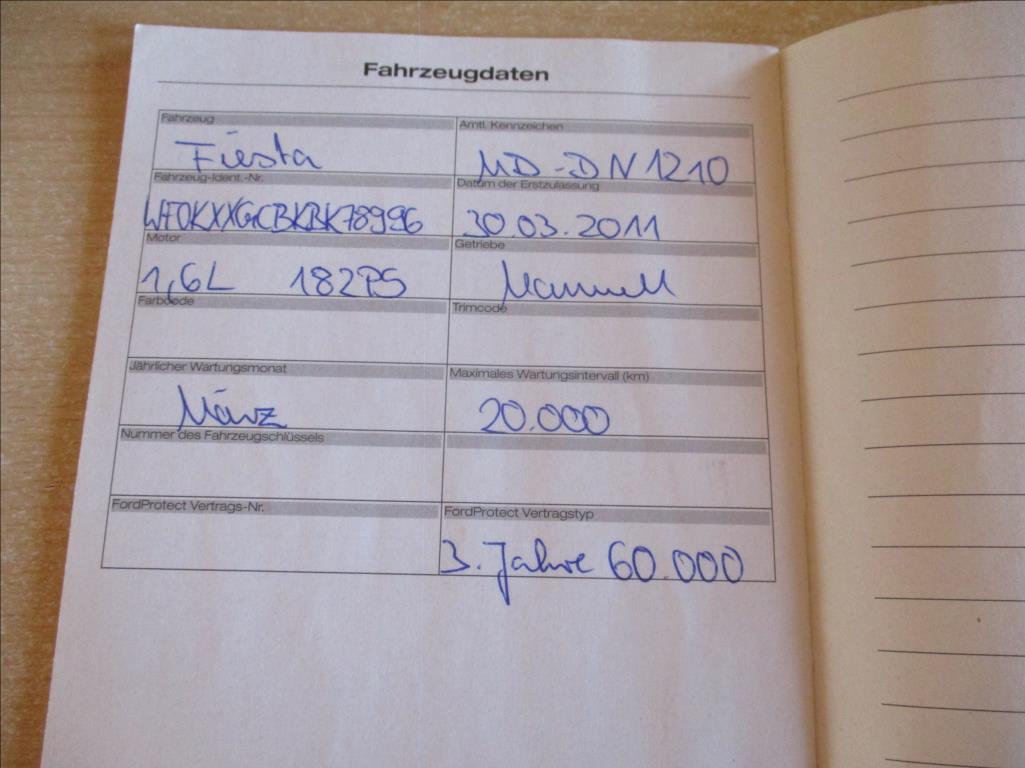 Fahrzeugdaten
Fahrzeug Amtl. Kennzeichen
Fiesta MD-DN1210
Fahrzeug-Ident.-Nr. Datum der Erstzulassung
WF0KXXGCBKBK78996 30.03.2011
Motor Getriebe
1,6L 182PS Manuell
Farbcode Trimcode
Jährlicher Wartungsmonat Maximales Wartungsintervall (km)
März 20.000
Nummer des Fahrzeugschlüssels
FordProtect Vertrags-Nr. FordProtect Vertragstyp
3. Jahre 60.000